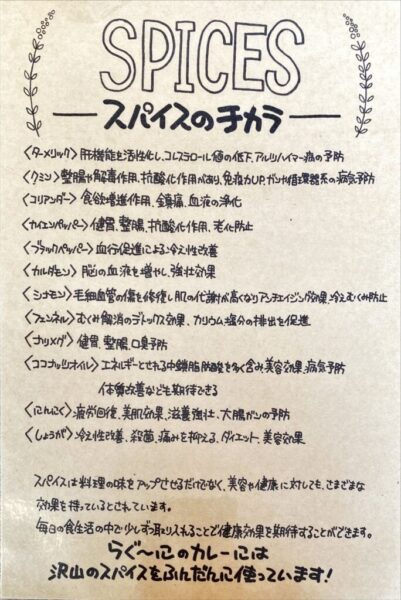 SPICES
スパイスのチカラ
〈ターメリック〉肝機能を活性化し、コレステロール値の低下、アルツハイマー病の予防
〈クミン〉整腸や解毒作用、抗酸化作用があり、免疫力UP、ガンや循環器系の病気予防
〈コリアンダー〉食欲増進作用、鎮痛、血液の浄化
〈カイエンペッパー〉健胃、整腸、抗酸化作用、老化防止
〈ブラックペッパー〉血行促進による冷え性改善
〈カルダモン〉脳の血液を増やし、強壮効果
〈シナモン〉毛細血管の傷を修復し肌の代謝が高くなりアンチエイジング効果、冷えむくみ防止
〈フェンネル〉むくみ解消のデトックス効果、カリウム、塩分の排出を促進
〈ナツメグ〉健胃、整腸、口臭予防
〈ココナッツオイル〉エネルギーとされる中鎖脂肪酸を多く含み、美容効果、病気予防
体質改善なども期待できる
〈にんにく〉疲労回復、美肌効果、滋養強壮、大腸ガンの予防
〈しょうが〉冷え性改善、殺菌、痛みを抑える、ダイエット、美容効果
スパイスは料理の味をアップさせるだけでなく、美容や健康に対しても、さまざまな
効果を持っているとされています。
毎日の食生活の中で少しずつ取り入れることで健康効果を期待することができます。
らぐ〜にのカレーには
沢山のスパイスをふんだんに使っています!